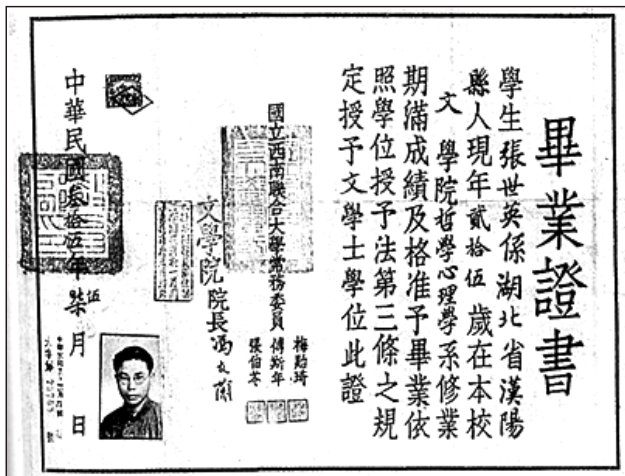 畢業證書
學生張世英係湖北省漢陽
縣人現年貳拾伍歲在本校
文學院哲學心理學系修業
期滿成績及格准予畢業依
照學位授予法第三條之規
定授予文學士學位此證
國立西南聯合大學常務委員
梅貽琦
傅斯年
張伯苓
文學院院長馮友蘭
中華民國叁拾伍年柒月
伍
日